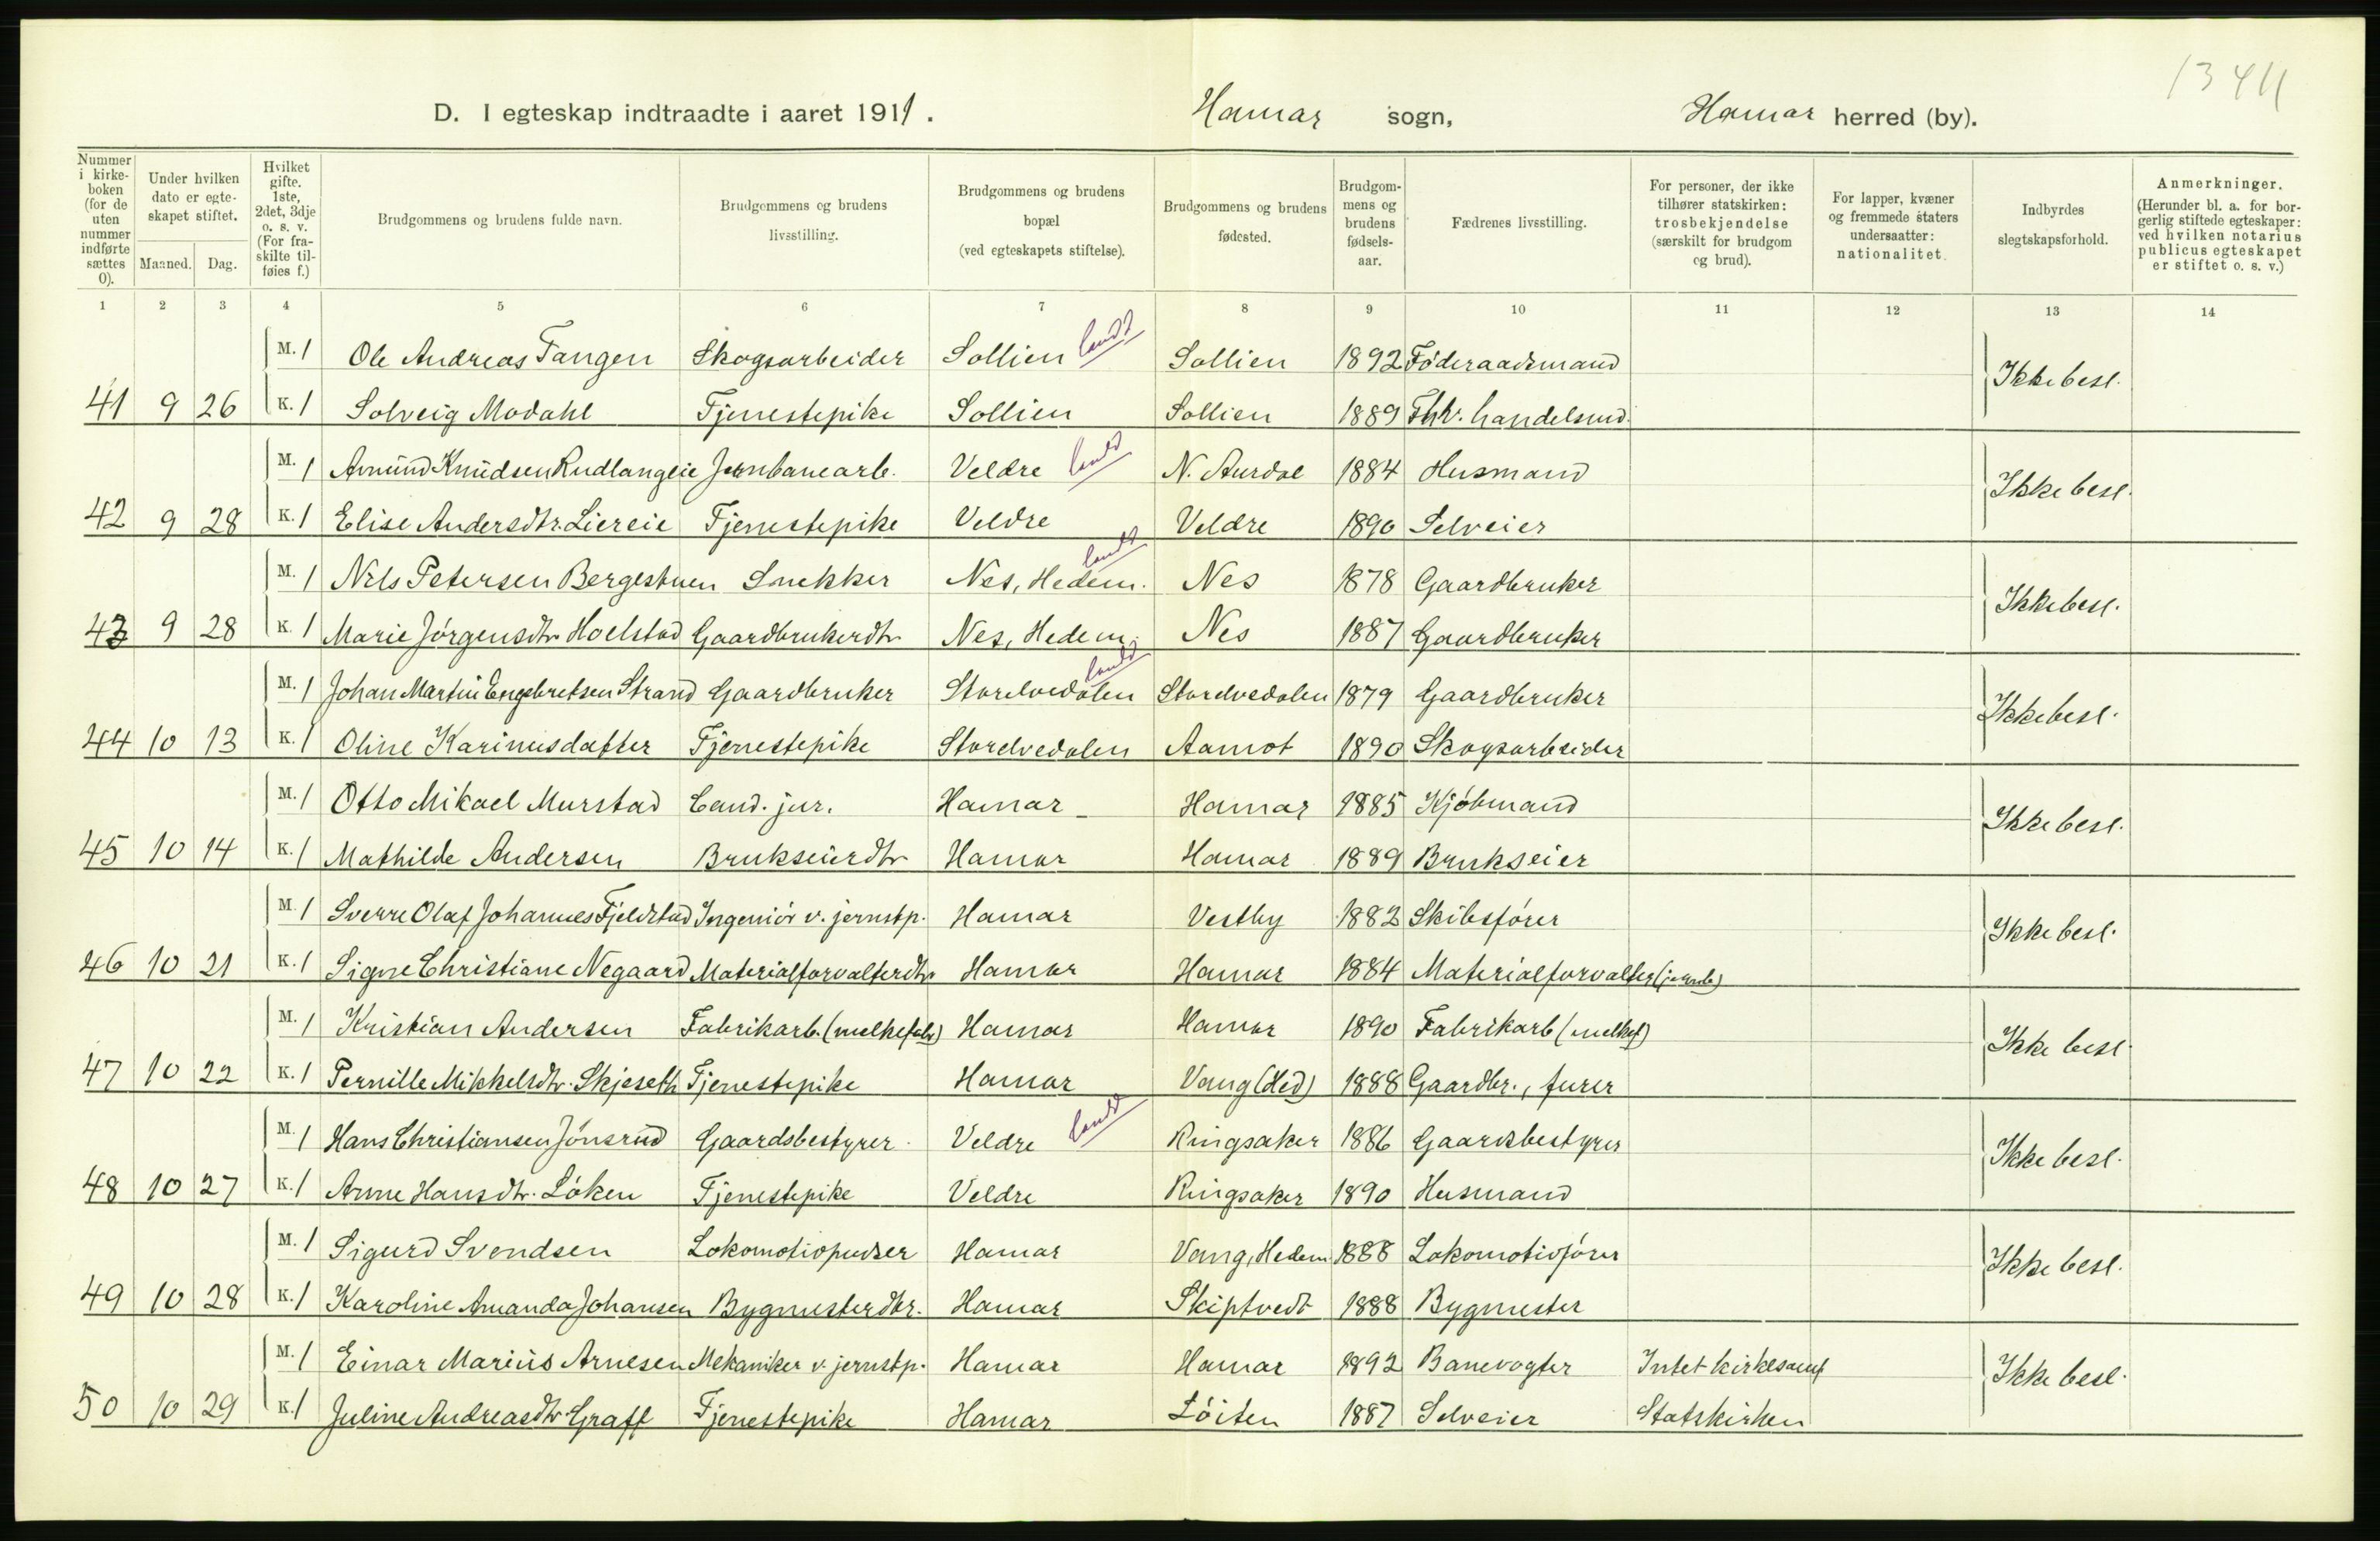 1341
D. I egteskap indtraadte i aaret 1911. Hamar sogn, Hamar herred (by).
Nummer i kirkeboken (for de uten nummer indførte sættes 0).
Under hvilken dato er egteskapet stiftet.
Maaned. Dag.
Hvilket gifte. 1ste, 2det, 3dje o. s. v. (For fraskilte tilføies f.)
Brudgommens og brudens fulde navn.
Brudgommens og brudens livsstilling.
Brudgommens og brudens bopæl (ved egteskapets stiftelse).
Brudgommens og brudens fødested.
Brudgommens og brudens fødselsaar.
Fædrenes livsstilling.
For personer, der ikke tilhører statskirken: trosbekjendelse (særskilt for brudgom og brud).
For lapper, kvæner og fremmede staters undersaatter: nationalitet.
Indbyrdes slegtskapsforhold.
Anmerkninger. (Herunder bl. a. for borgerlig stiftede egteskaper: ved hvilken notarius publicus egteskapet er stiftet o. s. v.)
1 2 3 4 5 6 7 8 9 10 11 12 13 14
M. 1 Ole Andreas Tangen Skogsarbeider Sollien landd Sollien 1892 Føderaadsmand Ikke besl.
41 9 26 K. 1 Solveig Modahl Tjenestepike Sollien Sollien 1889 Fhv. handelsmd.
M. 1 Amund Knudsen Rudlangeie Jernbanearb. Veldre landd N. Aurdal 1884 Husmand Ikke besl.
42 9 28 K. 1 Elise Andersdtr. Liereie Tjenestepike Veldre Veldre 1890 Selveier
M. 1 Nils Petersen Bergestuen Snekker Nes, Hedem. landd Nes 1878 Gaardbruker Ikke besl.
43 9 28 K. 1 Marie Jørgensdtr Hoelstad Gaardbrukerdtr Nes, Hedem. Nes 1887 Gaardbruker
M. 1 Johan Martin Engebretsen Strand Gaardbruker Storelvedalen landd Storelvedalen 1879 Gaardbruker Ikke besl.
44 10 13 K. 1 Oline Karinusdatter Tjenestepike Storelvedalen Aamot 1890 Skogsarbeider
M. 1 Otto Mikael Murstad Cand. jur. Hamar Hamar 1885 Kjøbmand Ikke besl.
45 10 14 K. 1 Mathilde Andersen Brukseierdtr Hamar Hamar 1889 Brukseier
M. 1 Sverre Olaf Johannes Fjeldstad Ingeniör v. jernstp. Hamar Vestby 1882 Skibsfører Ikke besl.
46 10 21 K. 1 Signe Christiane Negaard Materialforvalterdtr Hamar Hamar 1884 Materialforvalter (jernb)
M. 1 Kristian Andersen Fabrikarb. (melkefabr) Hamar Hamar 1890 Fabrikarb (melkef) Ikke besl.
47 10 22 K. 1 Pernille Mikkelsdtr. Skjeseth Tjenestepike Hamar Vang (Hed) 1888 Gaardbr., furer
M. 1 Hans Christiansen Jønsrud Gaardsbestyrer Veldre landd Ringsaker 1886 Gaardsbestyrer Ikke besl.
48 10 27 K. 1 Anne Hansdtr. Løken Tjenestepike Veldre Ringsaker 1890 Husmand
M. 1 Sigurd Svendsen Lokomotivpudser Hamar Vang, Hedem 1888 Lokomotivfører Ikke besl.
49 10 28 K. 1 Karoline Amanda Johansen Bygmesterdtr. Hamar Skiptvedt 1888 Bygmester
M. 1 Einar Marius Arnesen Mekaniker v. jernstp. Hamar Hamar 1892 Banevogter Intet kirkesamf Ikke besl.
50 10 29 K. 1 Juline Andreasdtr Graff Tjenestepike Hamar Løiten 1887 Selveier Statskirken